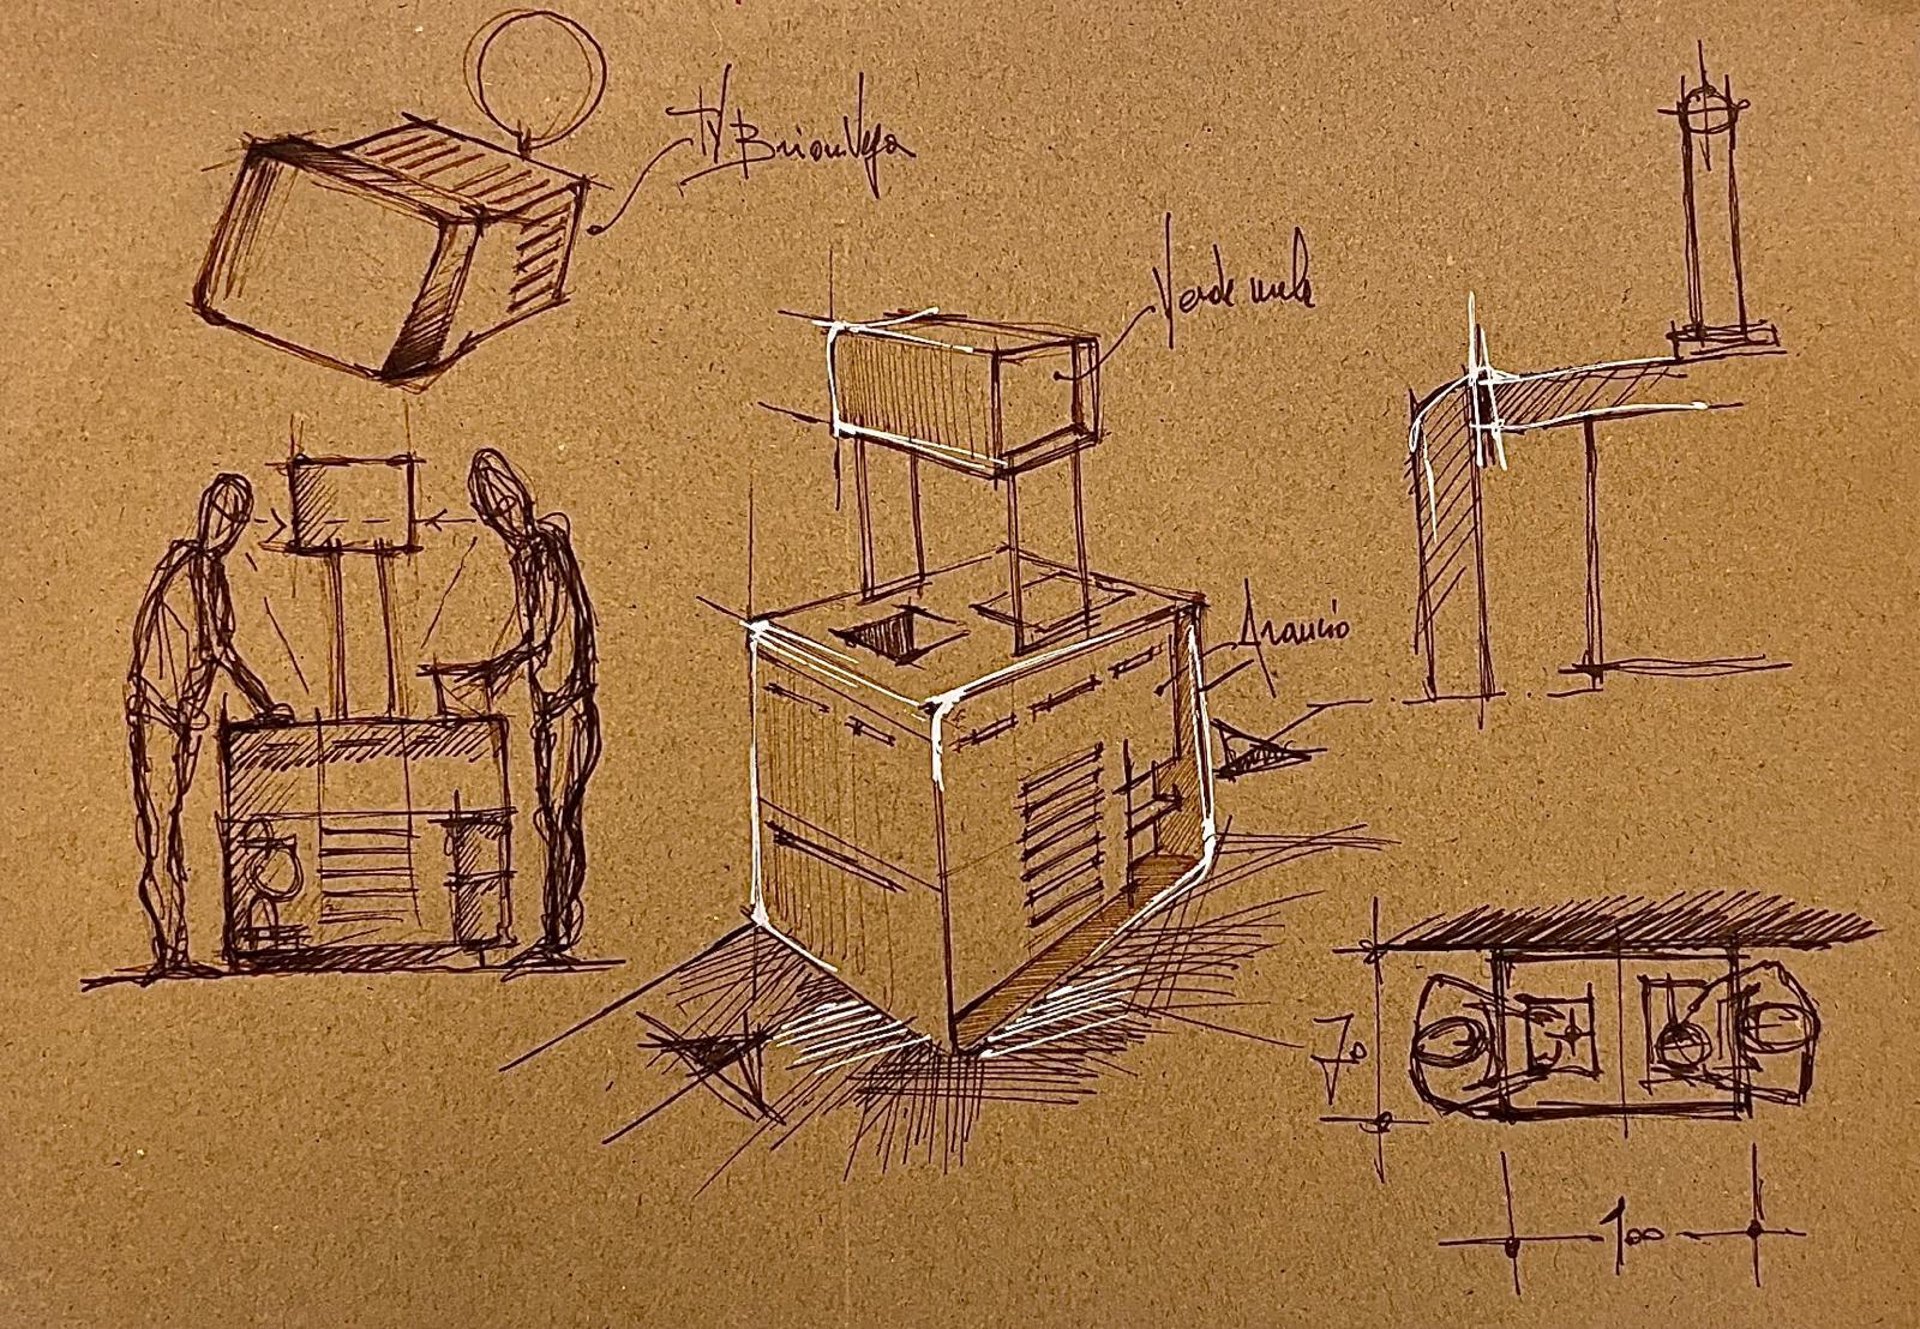 TV BrionVega
Verde mela
Arancio
70
100